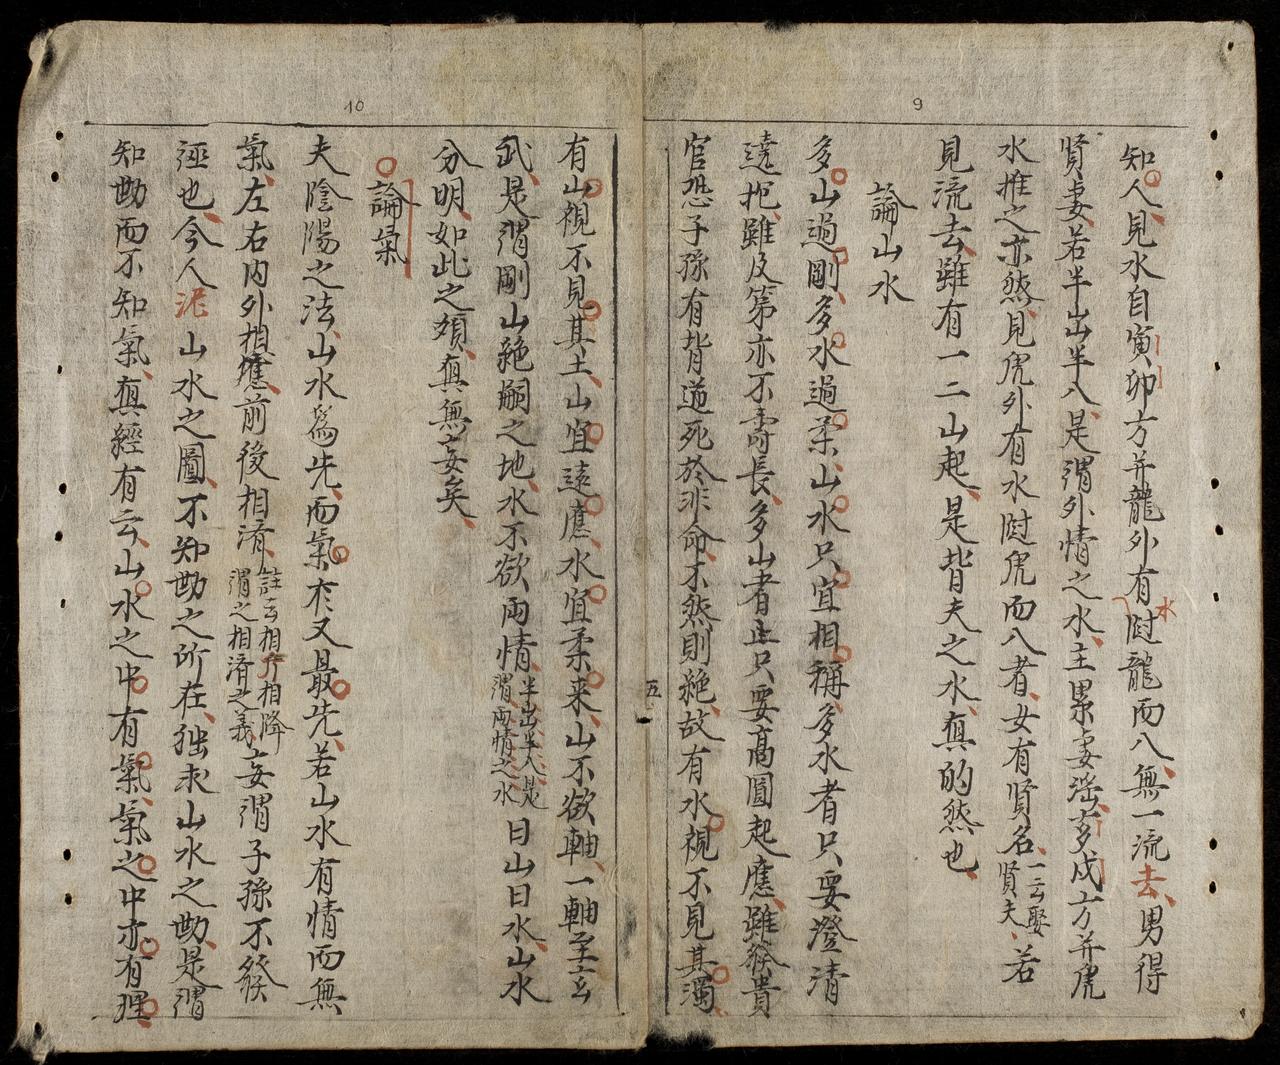 9
知人見水自寅卯方并龍外有水隨龍而入無一流去男得
賢妻若半出半入是謂外情之水主累妻淫奔戌方并虎
水推之亦然見虎外有水隨虎而入者女有賢名一云娶賢夫若
見流去雖有一二山起是背夫之水真的然也
論山水
多山過剛多水過柔山水只宜相稱多水者只要澄清
遶抱雖及第亦不壽長多山者止只要高圓起應雖發貴
官恐子孫有背逆死於非命不然則絶故有水視不見其濁
五
10
有山視不見其土山宜遠應水宜柔来山不欲軸一軸至玄
武是謂剛山絶嗣之地水不欲両情半出半入是謂両情之水曰山曰水山水
分明如此之類真無妄矣
論氣
夫陰陽之法山水為先而氣於又最先若山水有情而無
氣左右内外相應前後相濟註云相升相降謂之相濟之義妄謂子孫不發
逕也今人泥山水之圖不知勘之所在徒求山水之勘是謂
知勘而不知氣真經有云山水之中有氣氣之中亦有理